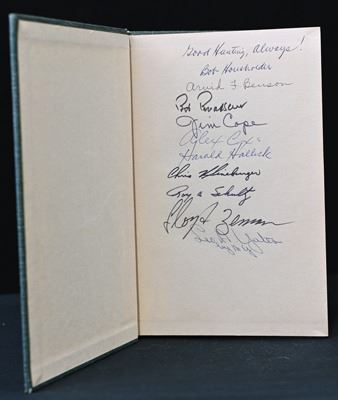 Good Hunting, Always!
Bob Housholder
Arvid F Benson
Bob
Jim Cope
Alex Cox
Harold Halick
Chris Klineburger
Roy A Schultz
Lloyd Zeman